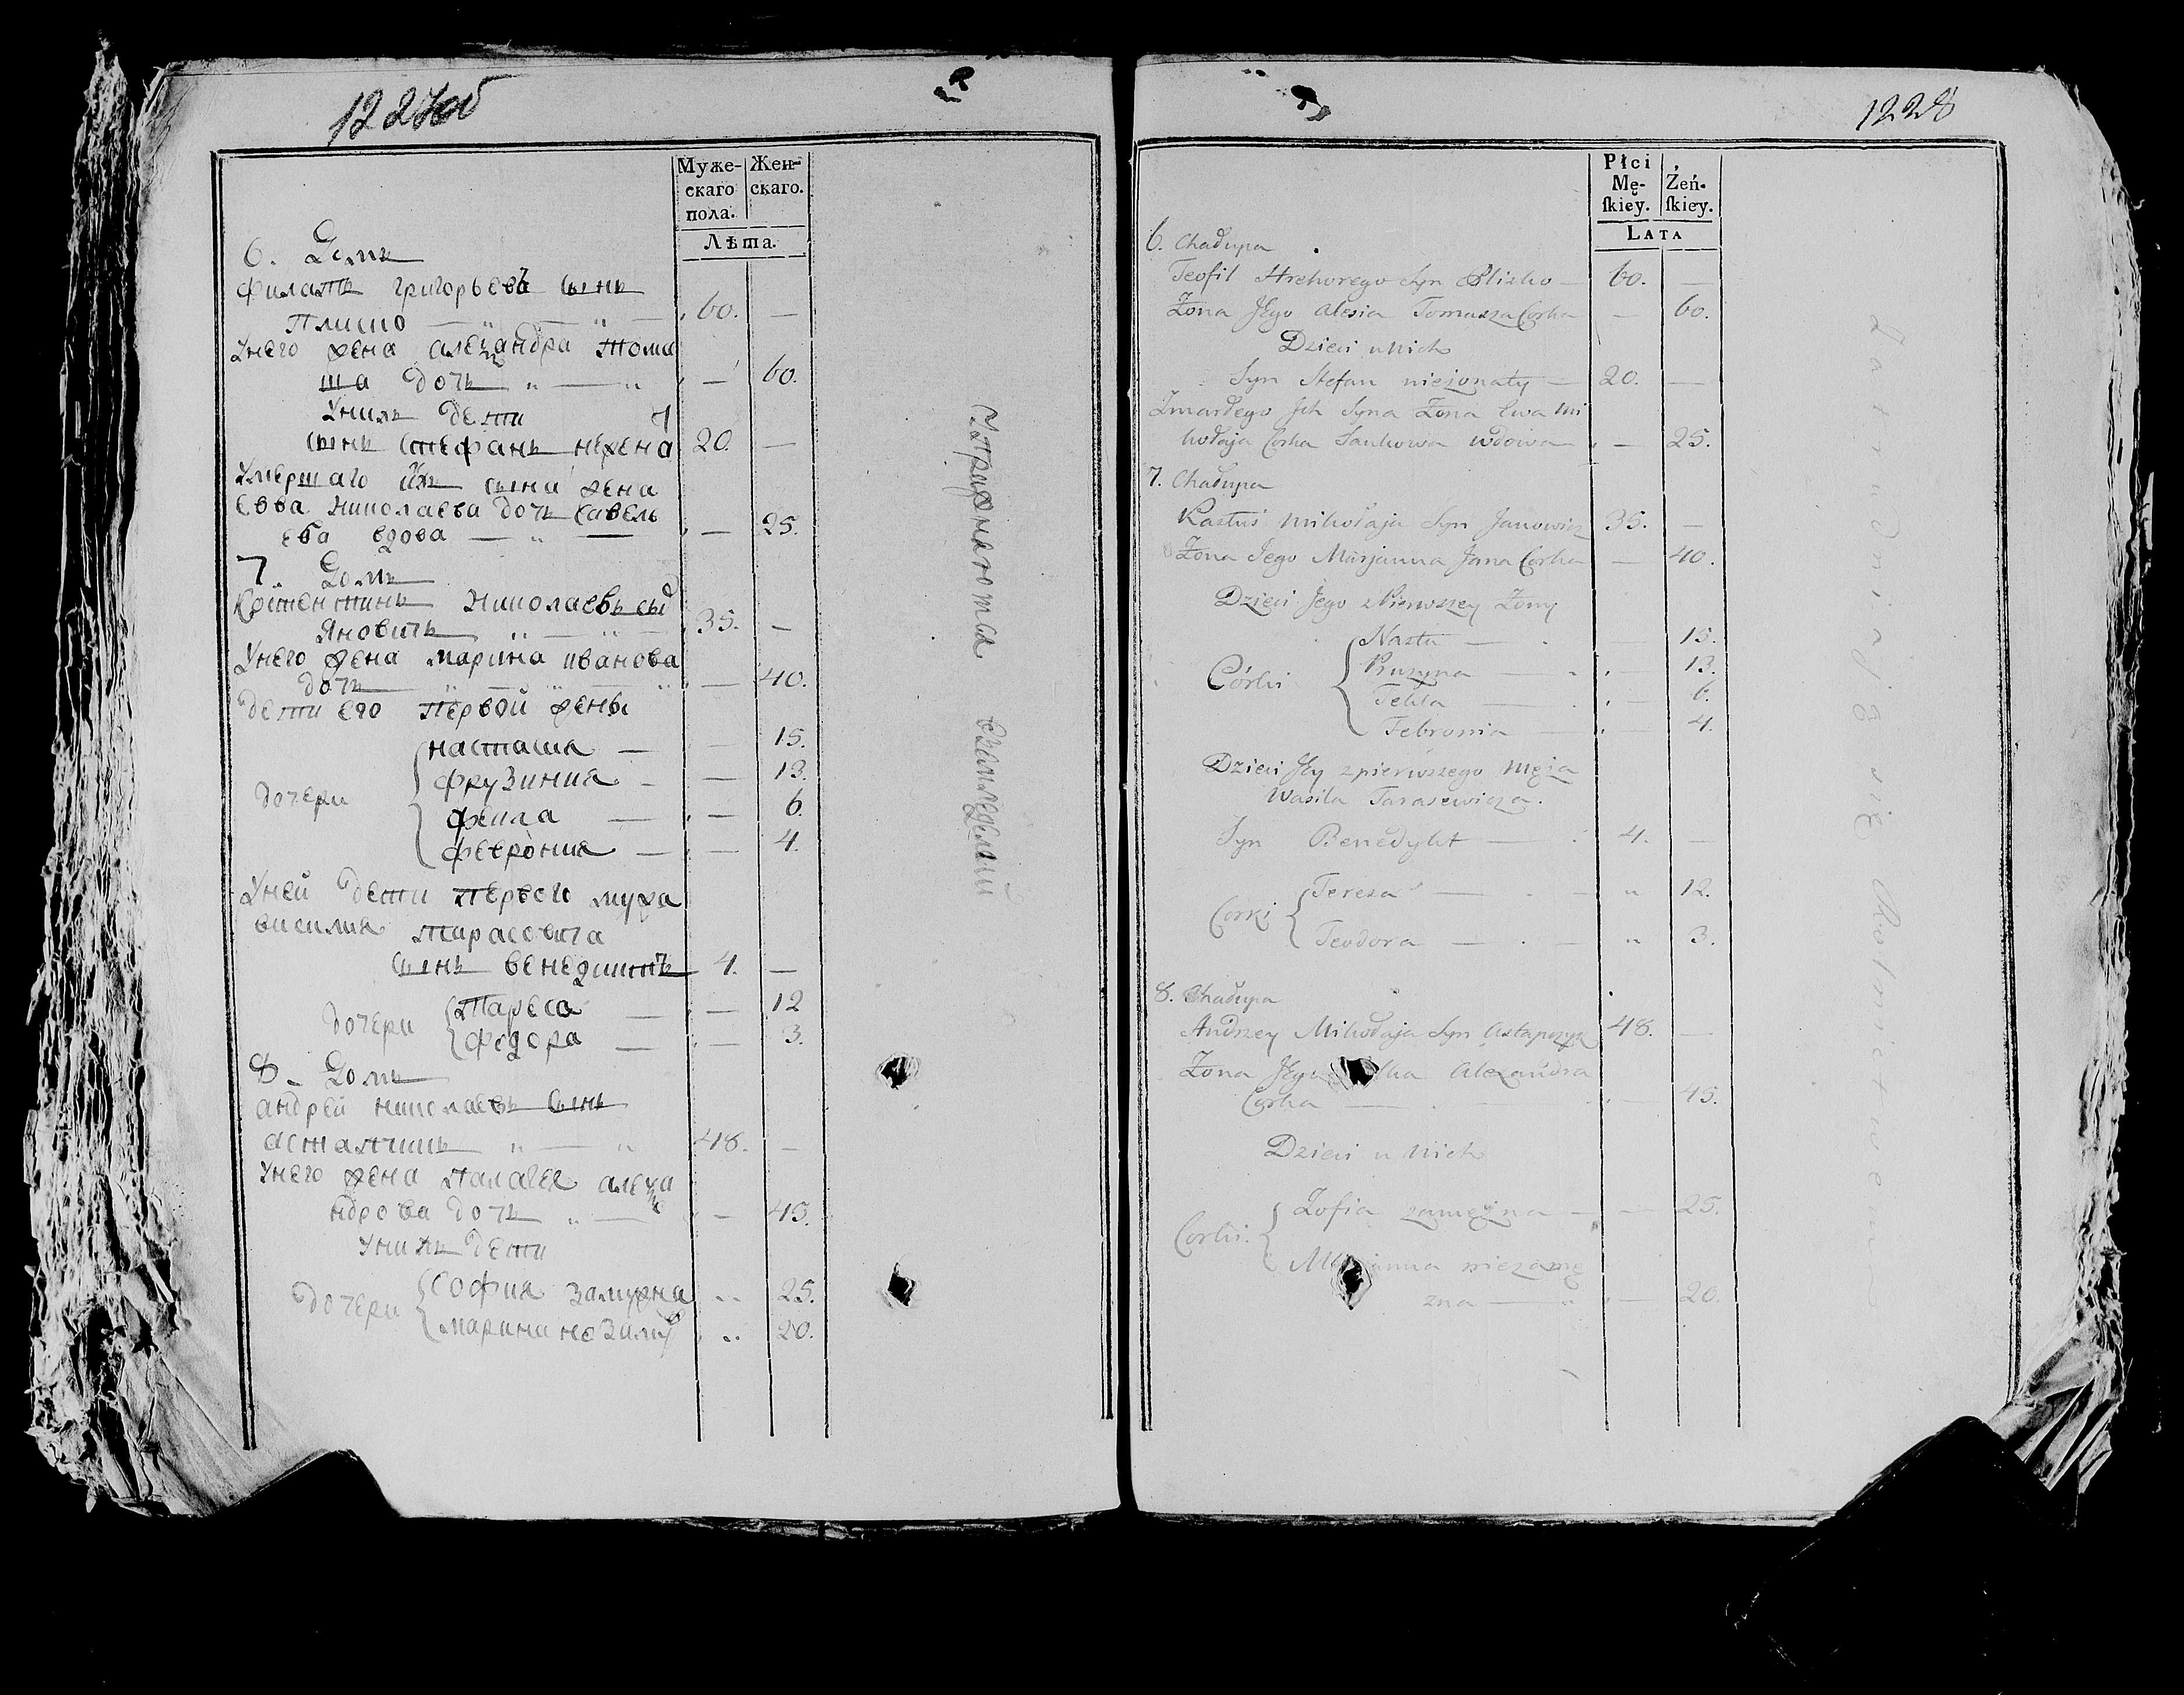 1227об
Муже-
скаго
пола.
Жен-
скаго.
Лѣта.
6. Домъ
Филатъ григорьевъ сынъ
Плиско 60. —
Унего жена александра тома
ша дочь — 60.
Унихъ дети
сынъ стефанъ нежена 20. —
Умершаго ихъ сына жена
евва николаева дочь савель
ева вдова — 25.
7. Домъ
николаевъ сы
Яновичь 35. —
Унего жена марина иванова
дочь — 40.
Дети его первой жены
дочери
насташя — 15.
фрузиния — 13.
фекла — 6.
феврония — 4.
Уней дети первого мужа
василия тарасовича
сынъ венедиктъ 4. —
дочери
Тареса — 12
федора — 3.
8. Домъ
андрей николаевъ сынъ
астапчикъ 48. —
Унего жена палагея алекса
ндрова дочь — 45.
Унихъ дети
дочери
софия замужна 25.
марина незамуж 20.
Упражняются
1228
Płci
Mę-
ſkiey.
Żeń-
ſkiey.
LATA
6. Chałupa
Teofil Hrehorego Syn Plisko 60. —
Żona Jego Alesia Tomasza Corka — 60.
Dzieci u Nich
Syn Stefan nieżonaty 20. —
Zmarłego Ich Syna Żona Ewa Mi
kołaja Corka Saukowa wdowa — 25.
7. Chałupa
Kastuś Mikołaja Syn Janowicz 35. —
Żona Jego Marjanna Jana Corka — 40.
Dzieci Jego z Pierwszey Żony
Córki
Nasta — 15.
Pruzyna — 13.
Tekla — 6.
Febronia — 4.
Dzieci Jey z pierwszego męża
Wasila Tarasewicza.
Syn Benedykt 4. —
Corki
Teresa „ 12.
Teodora „ 3.
8. Chałupa
Andrzey Mikołaja Syn Astapczyk 48. —
Żona Jego Alexandra
Corka — 45.
Dzieci u Nich
Corki.
Zofia zamężna — 25.
Marjanna niezamę
zna — 20.
Zatrudniają się Rolnictwem